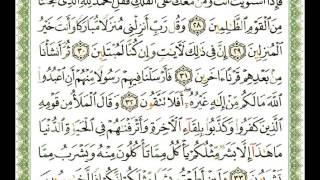 فَإِذَا ٱسْتَوَيْتَ أَنتَ وَمَن مَّعَكَ عَلَى ٱلْفُلْكِ فَقُلِ ٱلْحَمْدُ لِلَّهِ ٱلَّذِى نَجَّىٰنَا
مِنَ ٱلْقَوْمِ ٱلظَّٰلِمِينَ ٢٨ وَقُل رَّبِّ أَنزِلْنِى مُنزَلًا مُّبَارَكًا وَأَنتَ خَيْرُ
ٱلْمُنزِلِينَ ٢٩ إِنَّ فِى ذَٰلِكَ لَءَايَٰتٍ وَإِن كُنَّا لَمُبْتَلِينَ ٣٠ ثُمَّ أَنشَأْنَا
مِنۢ بَعْدِهِمْ قَرْنًا ءَاخَرِينَ ٣١ فَأَرْسَلْنَا فِيهِمْ رَسُولًا مِّنْهُمْ أَنِ ٱعْبُدُوا۟
ٱللَّهَ مَا لَكُم مِّنْ إِلَٰهٍ غَيْرُهُۥٓ أَفَلَا تَتَّقُونَ ٣٢ وَقَالَ ٱلْمَلَأُ مِن قَوْمِهِ
ٱلَّذِينَ كَفَرُوا۟ وَكَذَّبُوا۟ بِلِقَآءِ ٱلْءَاخِرَةِ وَأَتْرَفْنَٰهُمْ فِى ٱلْحَيَوٰةِ ٱلدُّنْيَا
مَا هَٰذَآ إِلَّا بَشَرٌ مِّثْلُكُمْ يَأْكُلُ مِمَّا تَأْكُلُونَ مِنْهُ وَيَشْرَبُ مِمَّا
تَشْرَبُونَ ٣٣